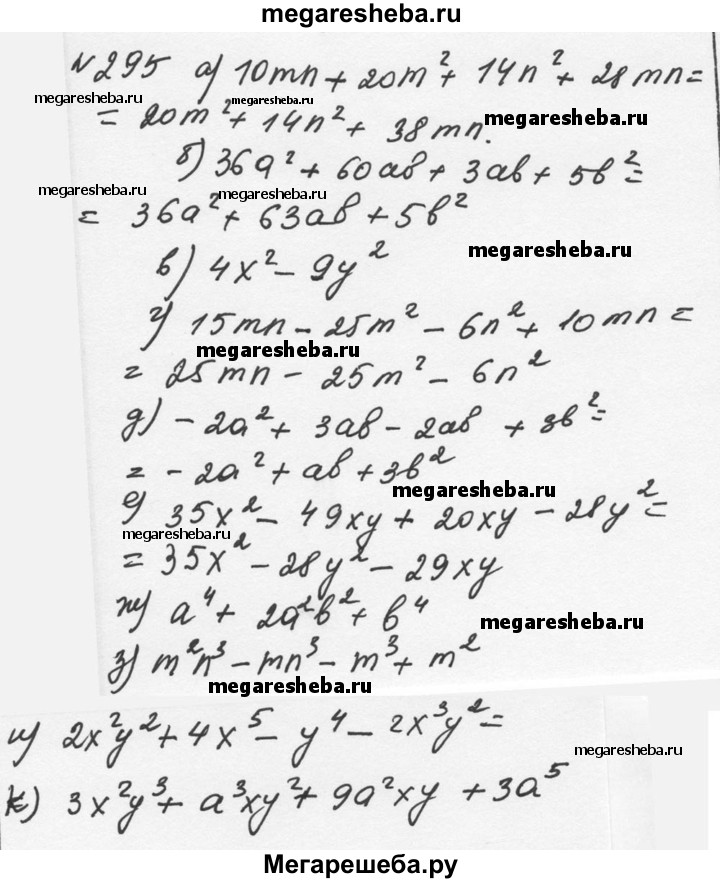 megaresheba.ru
№295 а) 10mn + 20m² + 14n² + 28mn =
megaresheba.ru megaresheba.ru
= 20m² + 14n² + 38mn. megaresheba.ru
б) 36a² + 60ab + 3ab + 5b² =
megaresheba.ru megaresheba.ru
= 36a² + 63ab + 5b²
в) 4x² - 9y² megaresheba.ru
г) 15mn - 25m² - 6n² + 10mn =
megaresheba.ru
= 25mn - 25m² - 6n²
д) - 2a² + 3ab - 2ab + 3b² =
= - 2a² + ab + 3b²
megaresheba.ru
е) 35x² - 49xy + 20xy - 28y² =
megaresheba.ru
= 35x² - 28y² - 29xy
ж) a⁴ + 2a²b² + b⁴ megaresheba.ru
з) m²n³ - mn³ - m³ + m²
megaresheba.ru
и) 2x²y² + 4x⁵ - y⁴ - 2x³y² =
megaresheba.ru
к) 3x²y³ + a³xy² + 9a²xy + 3a⁵
Мегарешеба.ру